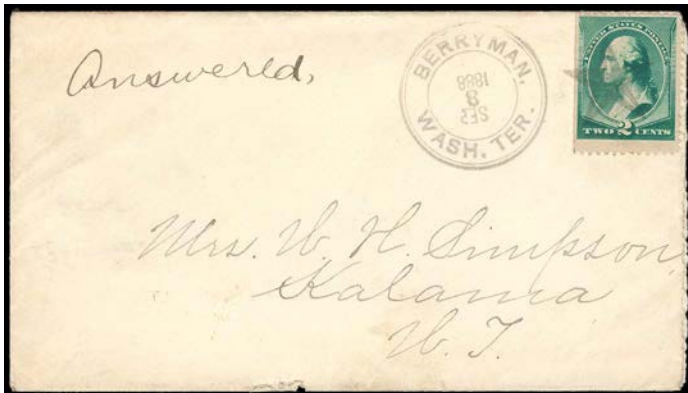 Answered,
BERRYMAN,
SEP
8
1888
WASH. TER.
UNITED STATES POSTAGE
TWO 2 CENTS
Mrs. W. H. Simpson,
Kalama
W. T.